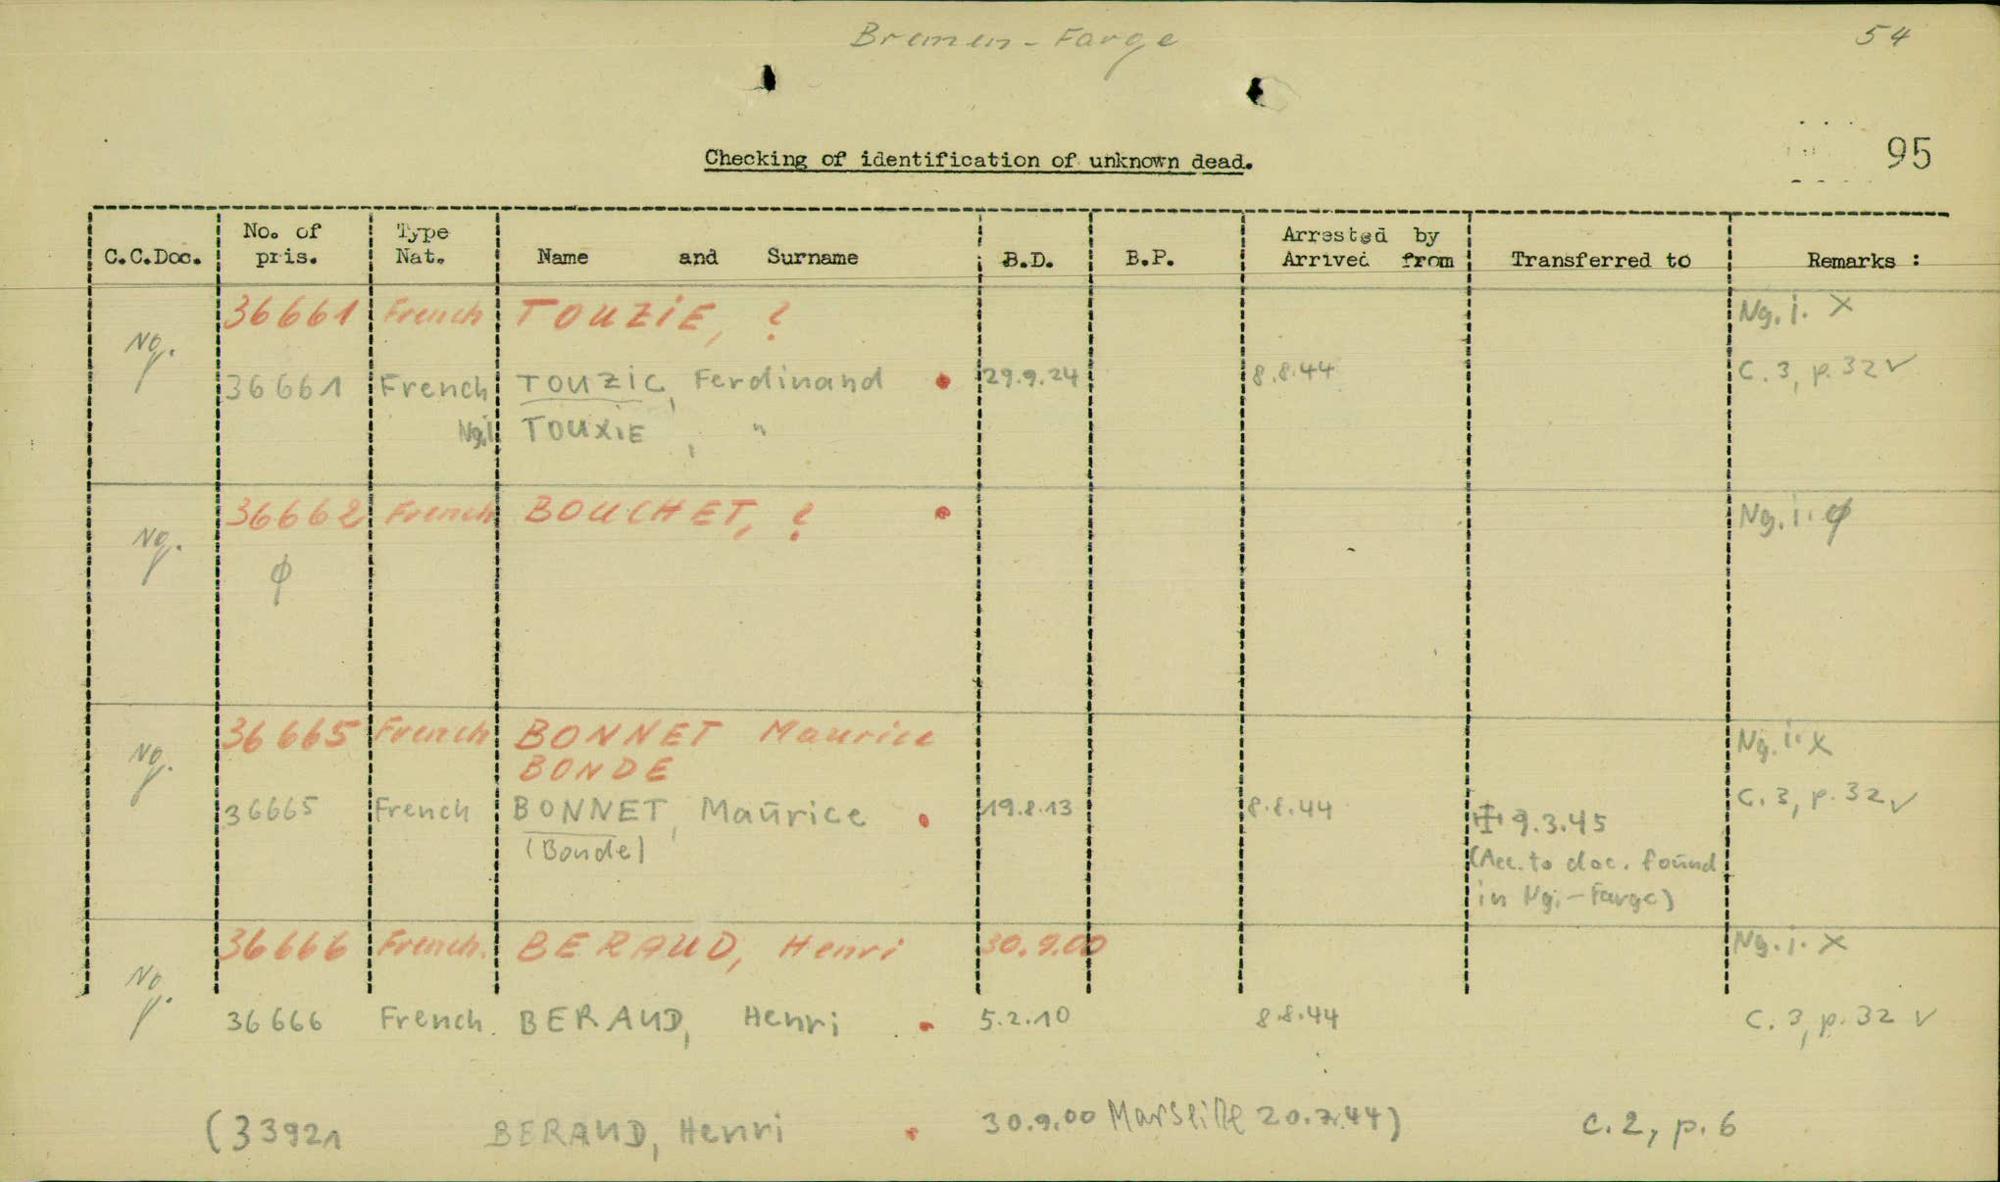 Bremen - Farge
54
95
Checking of identification of unknown dead.
C.C.Doc. No. of pris. Type Nat. Name and Surname B.D. B.P. Arrested by Arrived from Transferred to Remarks :
Ng. 36661 French TOUZIE, ? Ng. i. X
36661 French TOUZIC, Ferdinand 29.9.24 8.8.44 C. 3, p. 32 ✓
Ng.i. TOUXIE, "
Ng. 36662 French BOUCHET, ? Ng. i. ϕ
ϕ
Ng. 36665 French BONNET Maurice Ng. i. X
BONDE
36665 French BONNET, Maurice 19.8.13 8.8.44 ✝ 9.3.45 C. 3, p. 32 ✓
(Bonde) (Acc. to doc. found
in Ng. - Farge)
Ng. 36666 French. BERAUD, Henri 30.9.00 Ng. i. X
36666 French. BERAUD, Henri 5.2.10 8.8.44 C. 3, p. 32 ✓
(33921 BERAUD, Henri 30.9.00 Marseille 20.7.44) C. 2, p. 6